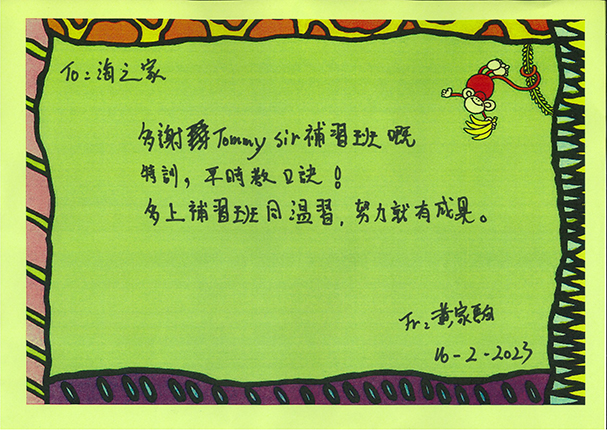 To：海之家
多謝Tommy Sir補習班嘅
特訓，平時教口訣！
多上補習班同溫習，努力就有成果。
Fr：黃家駒
16-2-2023